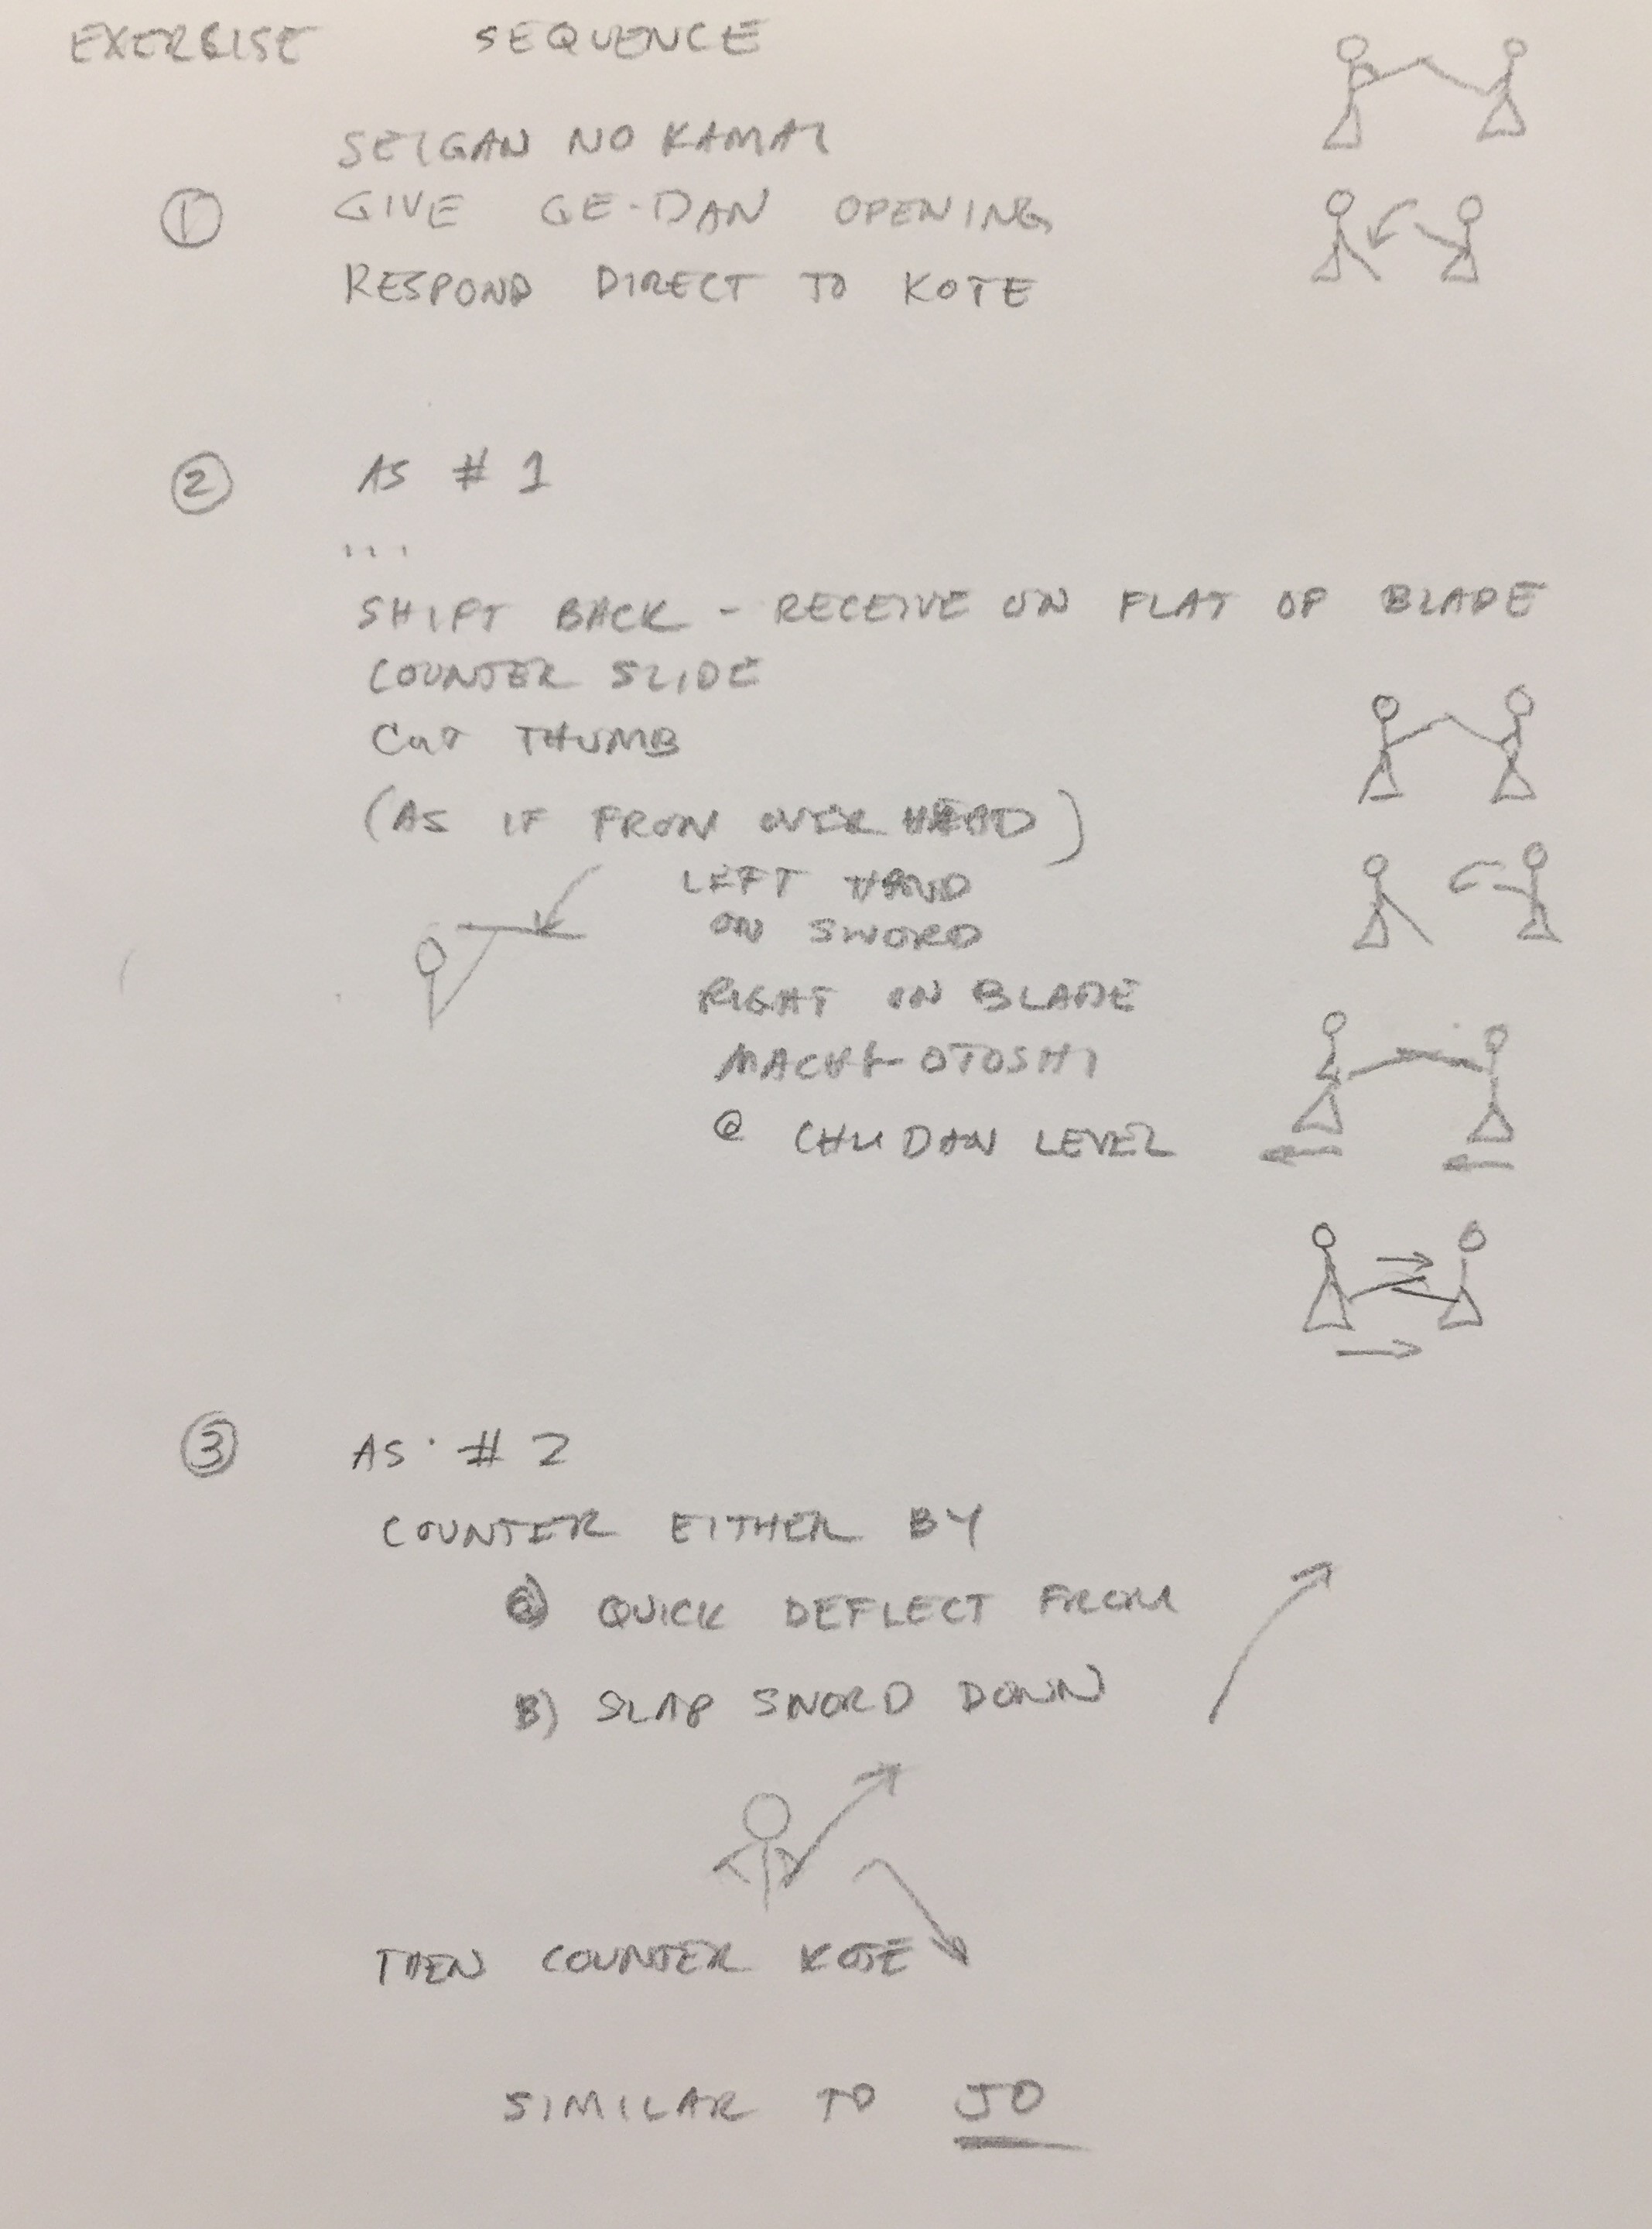 EXERCISE SEQUENCE
SEIGAN NO KAMAI
① GIVE GE-DAN OPENING
RESPOND DIRECT TO KOTE
② AS # 1
...
SHIFT BACK - RECEIVE ON FLAT OF BLADE
COUNTER SLIDE
CUT THUMB
(AS IF FROM OVER HEAD)
LEFT HAND
ON SWORD
RIGHT ON BLADE
OTOSHI
@ CHUDAN LEVEL
③ AS # 2
COUNTER EITHER BY
a) QUICK DEFLECT FROM
B) SLAP SWORD DOWN
THEN COUNTER KOTE
SIMILAR TO JO